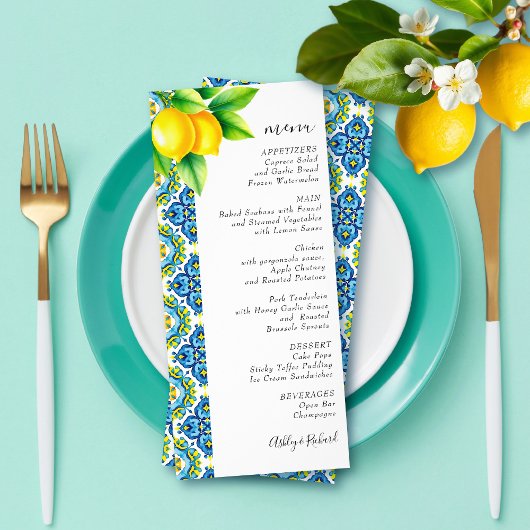 menu
APPETIZERS
Caprese Salad
and Garlic Bread
Frozen Watermelon
MAIN
Baked Seabass with Fennel
and Steamed Vegetables
with Lemon Sause
Chicken
with gorgonzola sauce,
Apple Chutney
and Roasted Potatoes
Pork Tenderloin
with Honey Garlic Sauce
and Roasted
Brussels Sprouts
DESSERT
Cake Pops
Sticky Toffee Pudding
Ice Cream Sandwiches
BEVERAGES
Open Bar
Champagne
Ashley & Richard